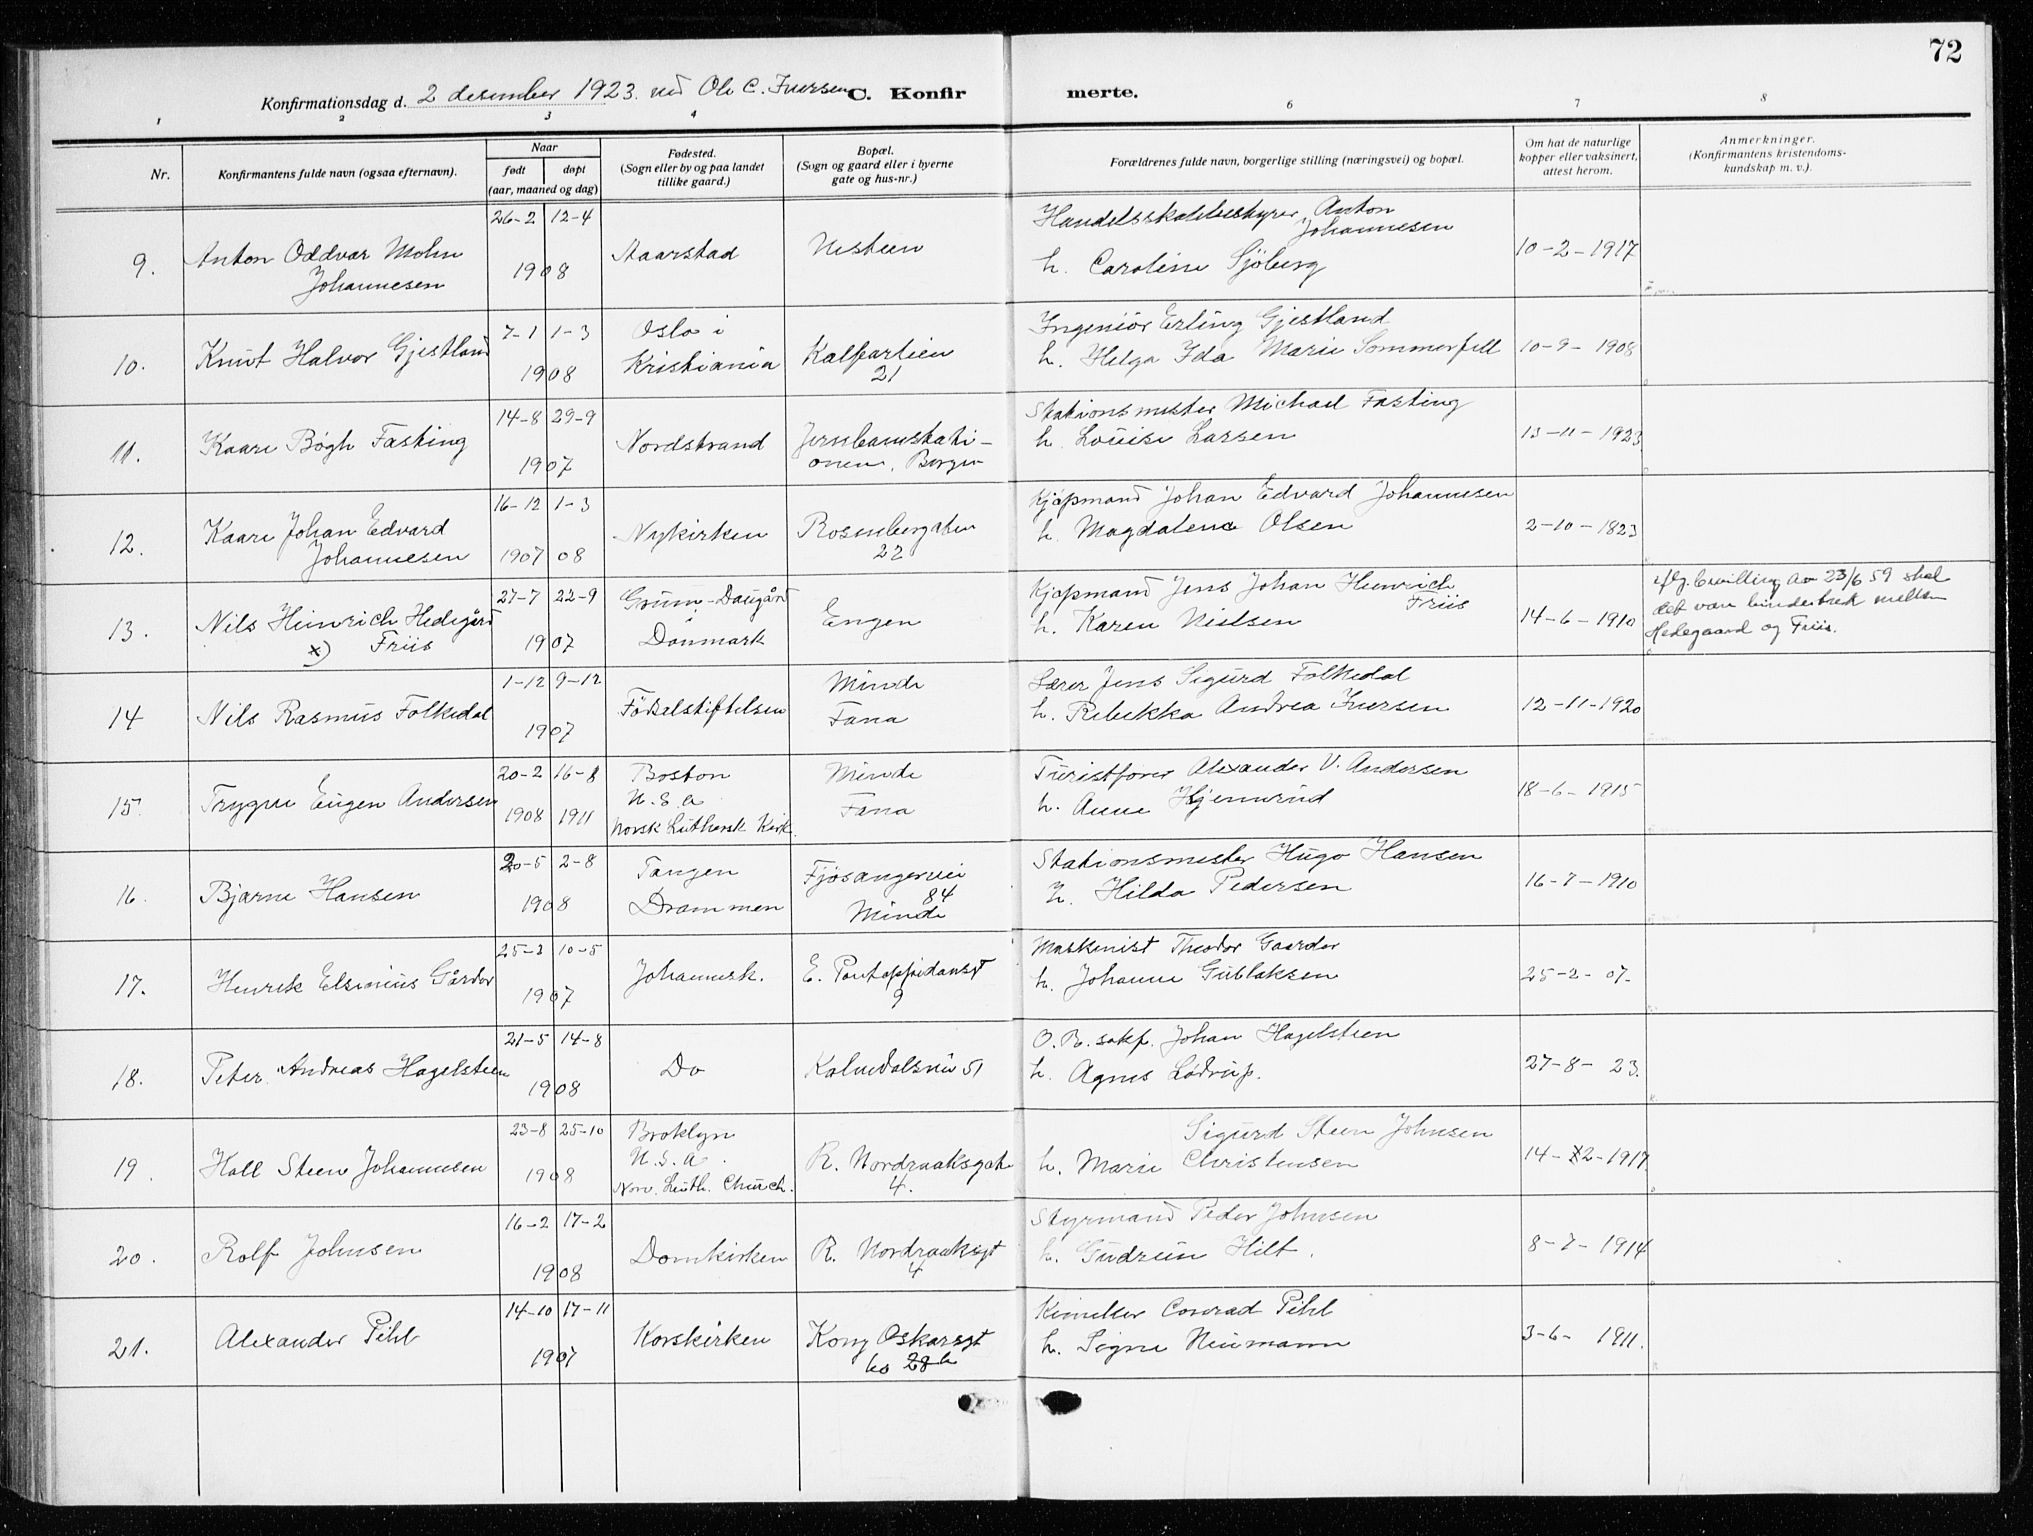 72
Konfirmationsdag d. 2 desember 1923. ved Ole C. Iversen C. Konfirmerte.
1 2 3 4 6 7 8
Nr. Konfirmantens fulde navn (ogsaa efternavn). Naar født døpt (aar, maaned og dag) Fødested. (Sogn eller by og paa landet tillike gaard.) Bopæl. (Sogn og gaard eller i byerne gate og hus-nr.) Forældrenes fulde navn, borgerlige stilling (næringsvei) og bopæl. Om hat de naturlige kopper eller vaksinert, attest herom. Anmerkninger. (Konfirmantens kristendoms-kundskap m. v.).
9. Anton Oddvar Mohn Johannesen 26-2 12-4 1908 Aarstad Nesteen Anton Johannesen h. Caroline Sjöberg 10-2-1917
10. Knut Halvor Gjestland 7-1 1-3 1908 Oslo i Kristiania Kalfarlien 21 Ingeniör Erling Gjestland h. Helga Ida Marie Sommerfelt 10-9-1908
11. Kaare Bøgh Fasting 14-8 29-9 1907 Nordstrand Jernbanestationen, Bergen Stationsmester Michael Fasting h. Louise Larsen 13-11-1923
12. Kaare Johan Edvard Johannesen 16-12 1-3 1907 08 Nykirken Rosenbergaten 22 Kjøpmand Johan Edvard Johannesen h. Magdalene Olsen 2-10-1823
13. Nils Heinrich Hedegård x) Friis 27-7 22-9 1907 Grum-Daugård Danmark Engen Kjøpmand Jens Johan Henrich Friis h. Karen Nielsen 14-6-1910 iflg. bevilling av 23/6 59 skal det være bindestrek mellem Hedegaard og Friis.
14 Nils Rasmus Folkedal 1-12 9-12 1907 Födselstiftelsen Minde Fana Lærer Jens Sigurd Folkedal h. Rebekka Andrea Iversen 12-11-1920
15. Trygve Eugen Andersen 20-2 16-8 1908 1911 Boston U.S.A Norsk Luthersk Kirk. Minde Fana Turistförer Alexander V. Andersen h. Anne Hjemerud 18-6-1915
16. Bjarne Hansen 20-5 2-8 1908 Tangen Drammen Fjösangervei 84 Minde Stationsmester Hugo Hansen h. Hilda Pedersen 16-7-1910
17. Henrik Elsenius Gårder 25-3 10-5 1907 Johannesk. E. Pontoppidansgt 9 Maskinist Theodor Gaarder h. Johanne Gullaksen 25-2-07.
18. Peter Andreas Hagelsteen 21-5 14-8 1908 Do Kalvedalsvei 51 O.R. sakf. Johan Hagelsteen h. Agnes Lödrup. 27-8-23.
19. Hall Steen Johannesen 23-8 25-10 1908 Broklyn U.S.A. Norw. Luth. Church. R. Nordraaksgate 4. Sigurd Steen Johnsen h. Marie Christensen 14-12-1917
20. Rolf Johnsen 16-2 17-2 1908 Domkirken R. Nordraaksgt 4 Styrmand Peder Johnsen h. Gudrun Hilt. 8-7-1914
21. Alexander Pihl 14-10 17-11 1907 Korskirken Kong Oskarsgt 60 28b Conrad Pihl h. Signe Neumann 3-6-1911.